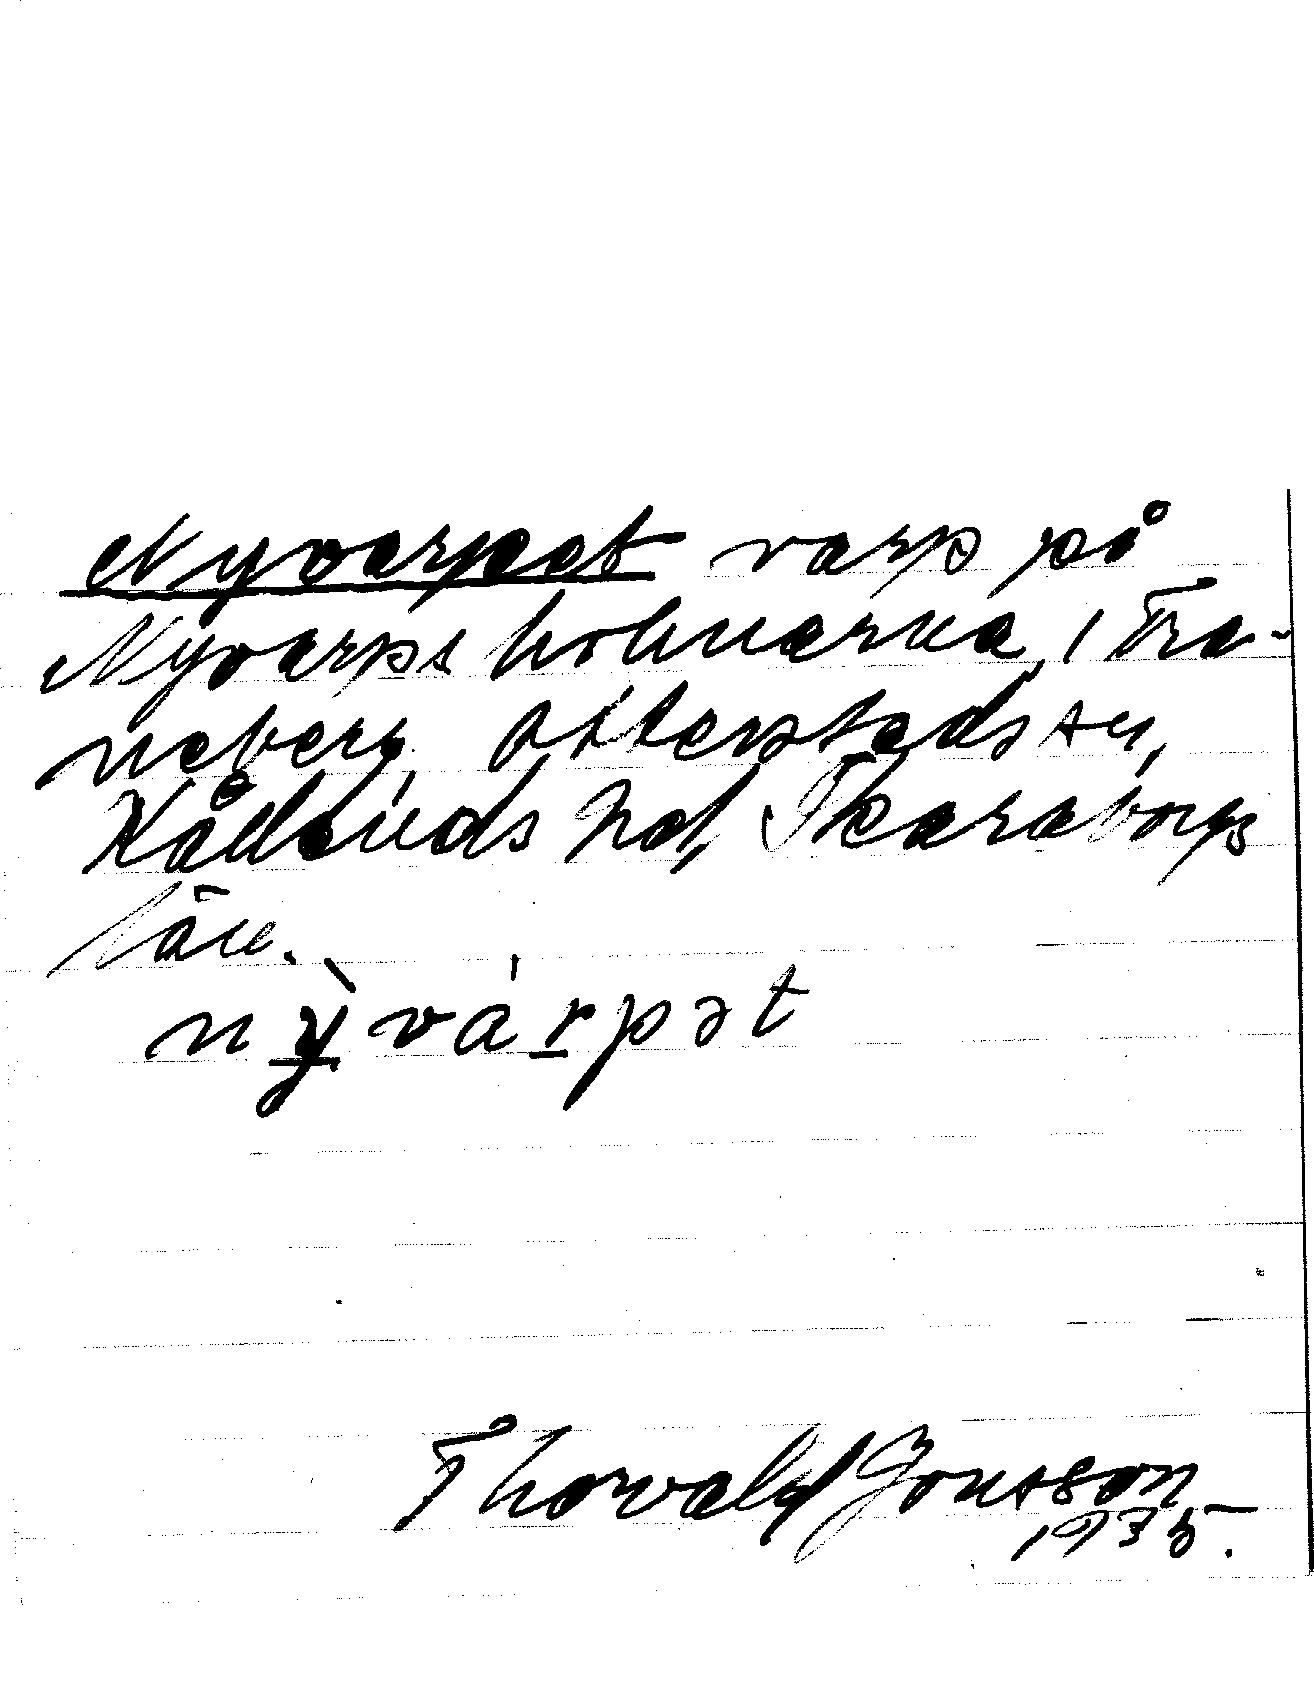 Nyvarpet varp på
Nyvarpsholmarna, i Tra-
neberg, Otterstads sn,
Kållands hd, Skaraborgs
län.
nỳvárpət
Thorvald Jonsson
1935.